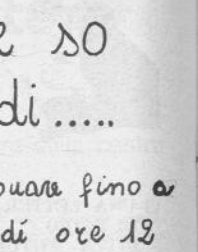 e so
di.....
uare fino a
dí ore 12